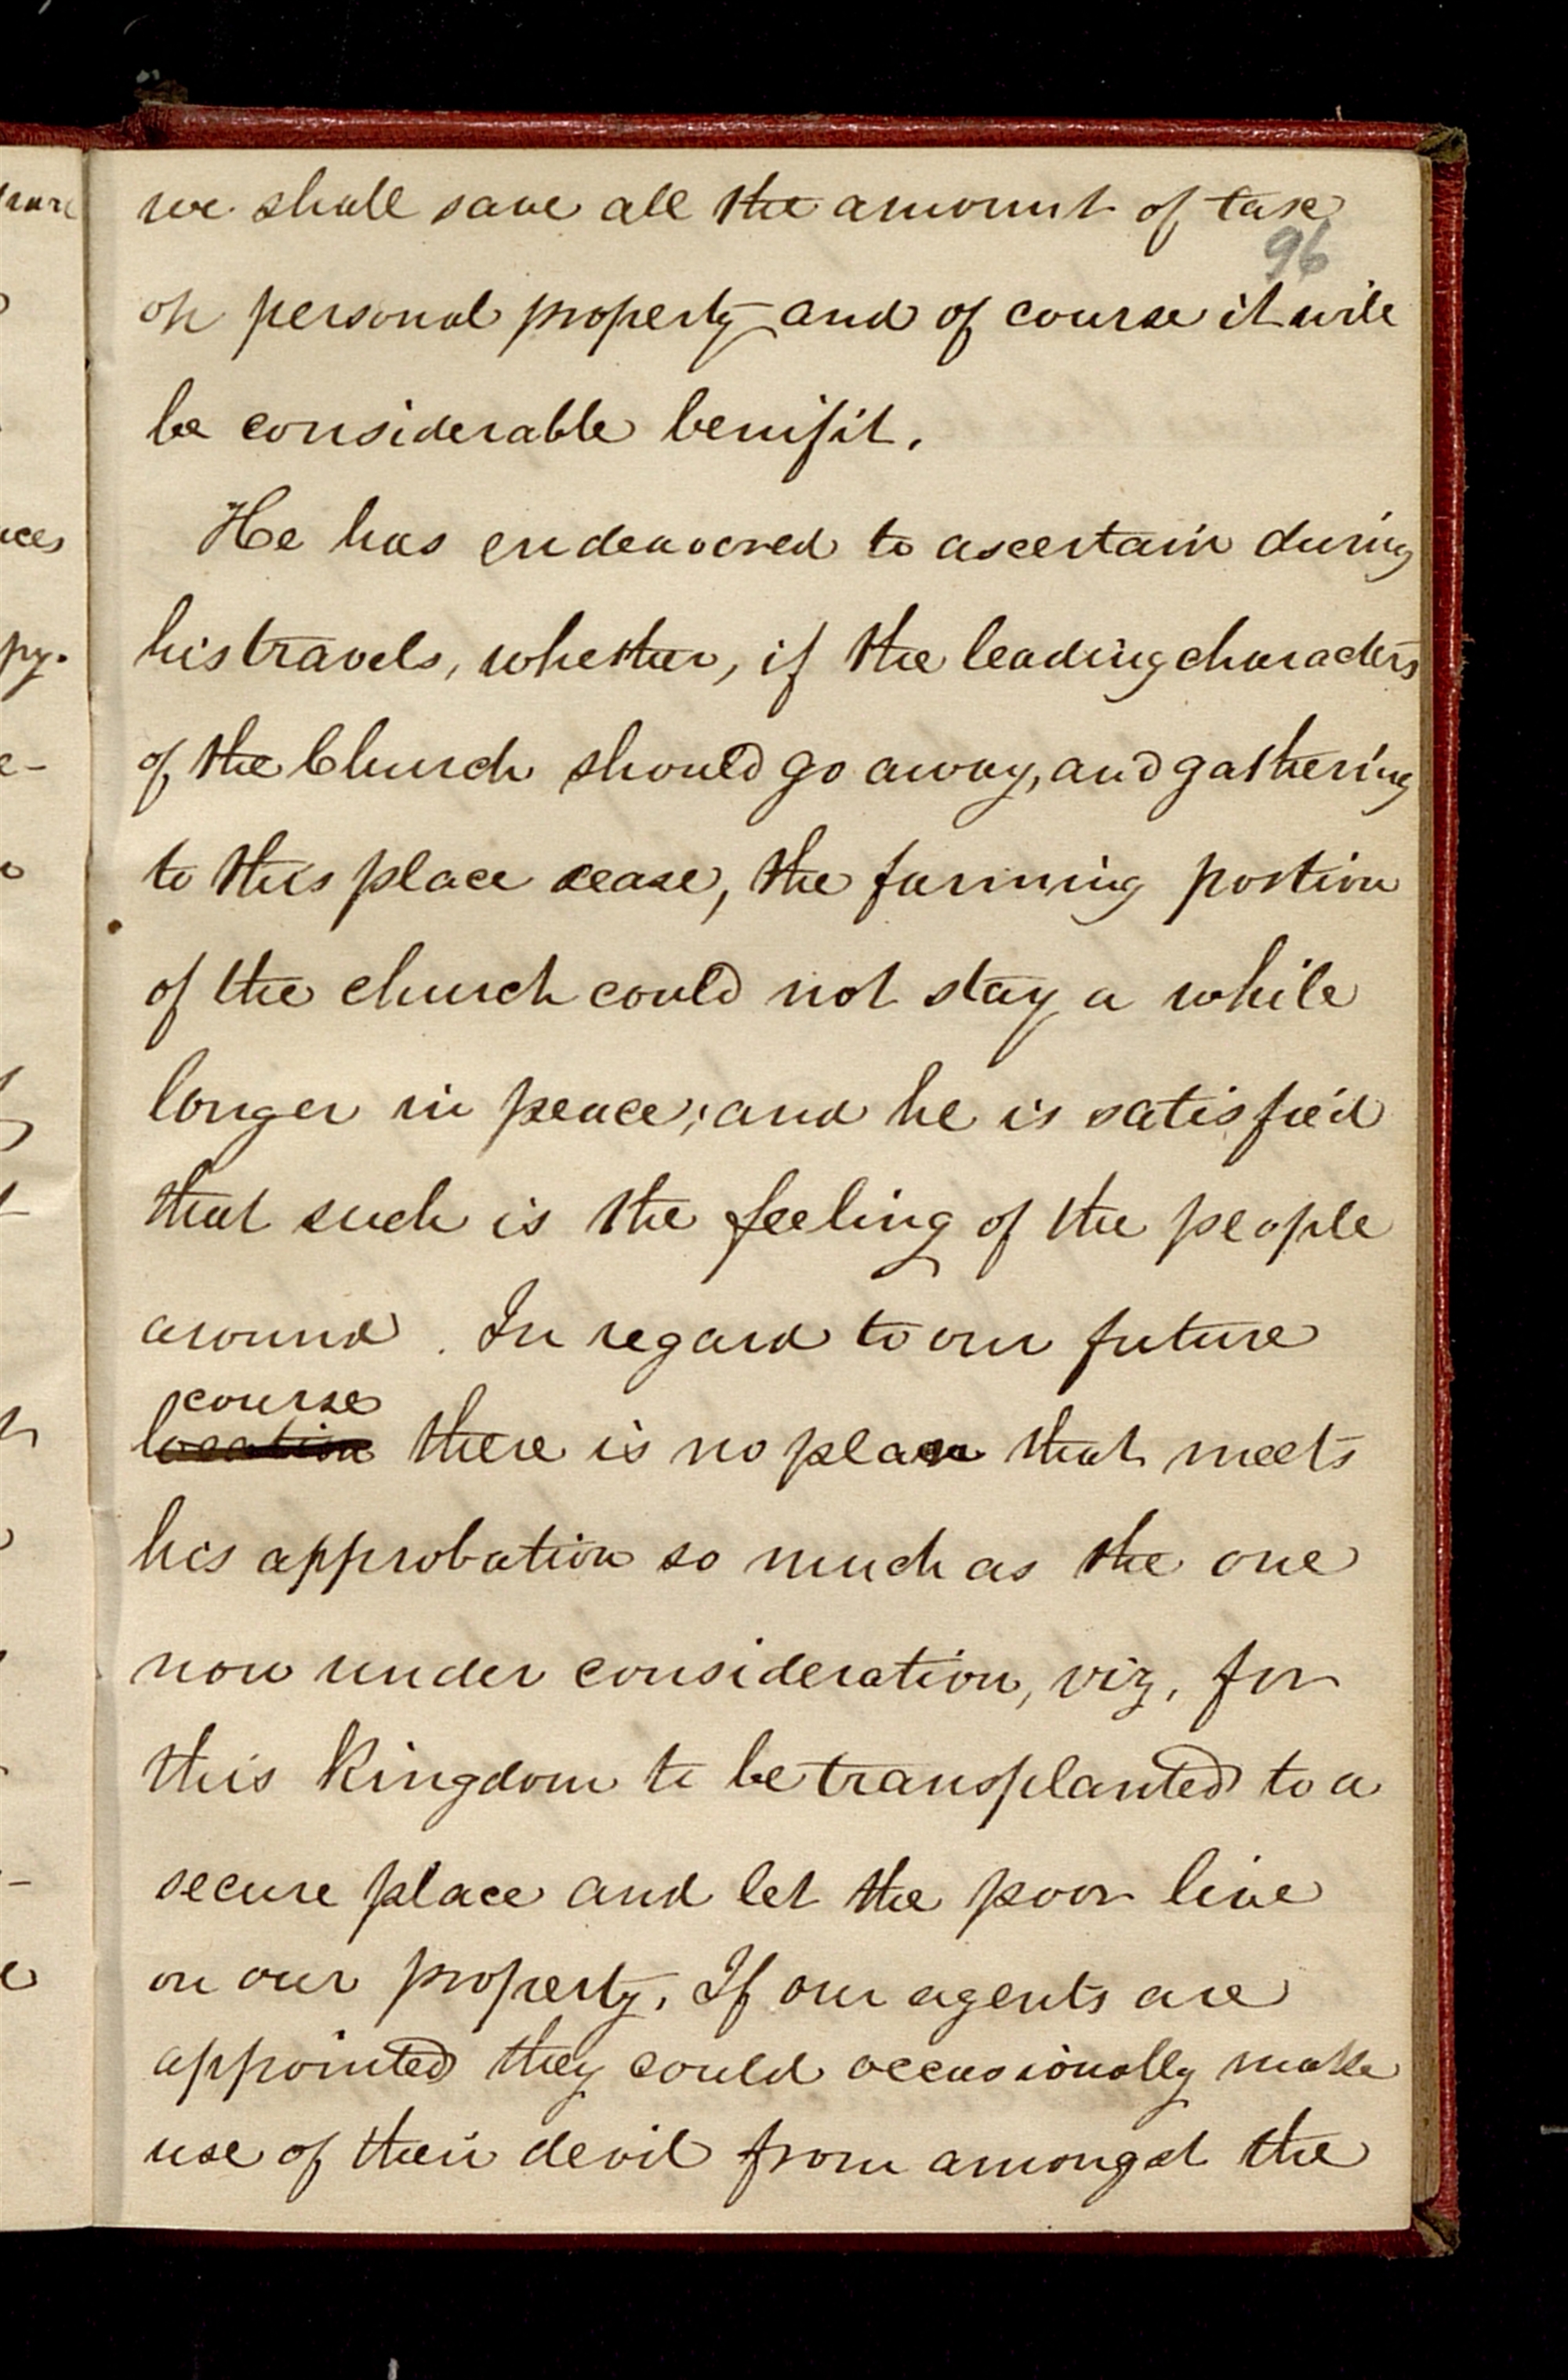 we shall save all the amount of tax
96
on personal property and of course it will
be considerable benifit.
He has endeavored to ascertain during
his travels, whether, if the leading characters
of the Church should go away, and gathering
to this place cease, the farming portion
of the church could not stay a while
longer in peace; and he is satisfied
that such is the feeling of the people
around. In regard to our future
course
location there is no plan that meets
his approbation so much as the one
now under consideration, viz, for
this Kingdom to be transplanted to a
secure place and let the poor live
on our property. If our agents are
appointed they could occasionally make
use of their devil from amongst the
ces
py.